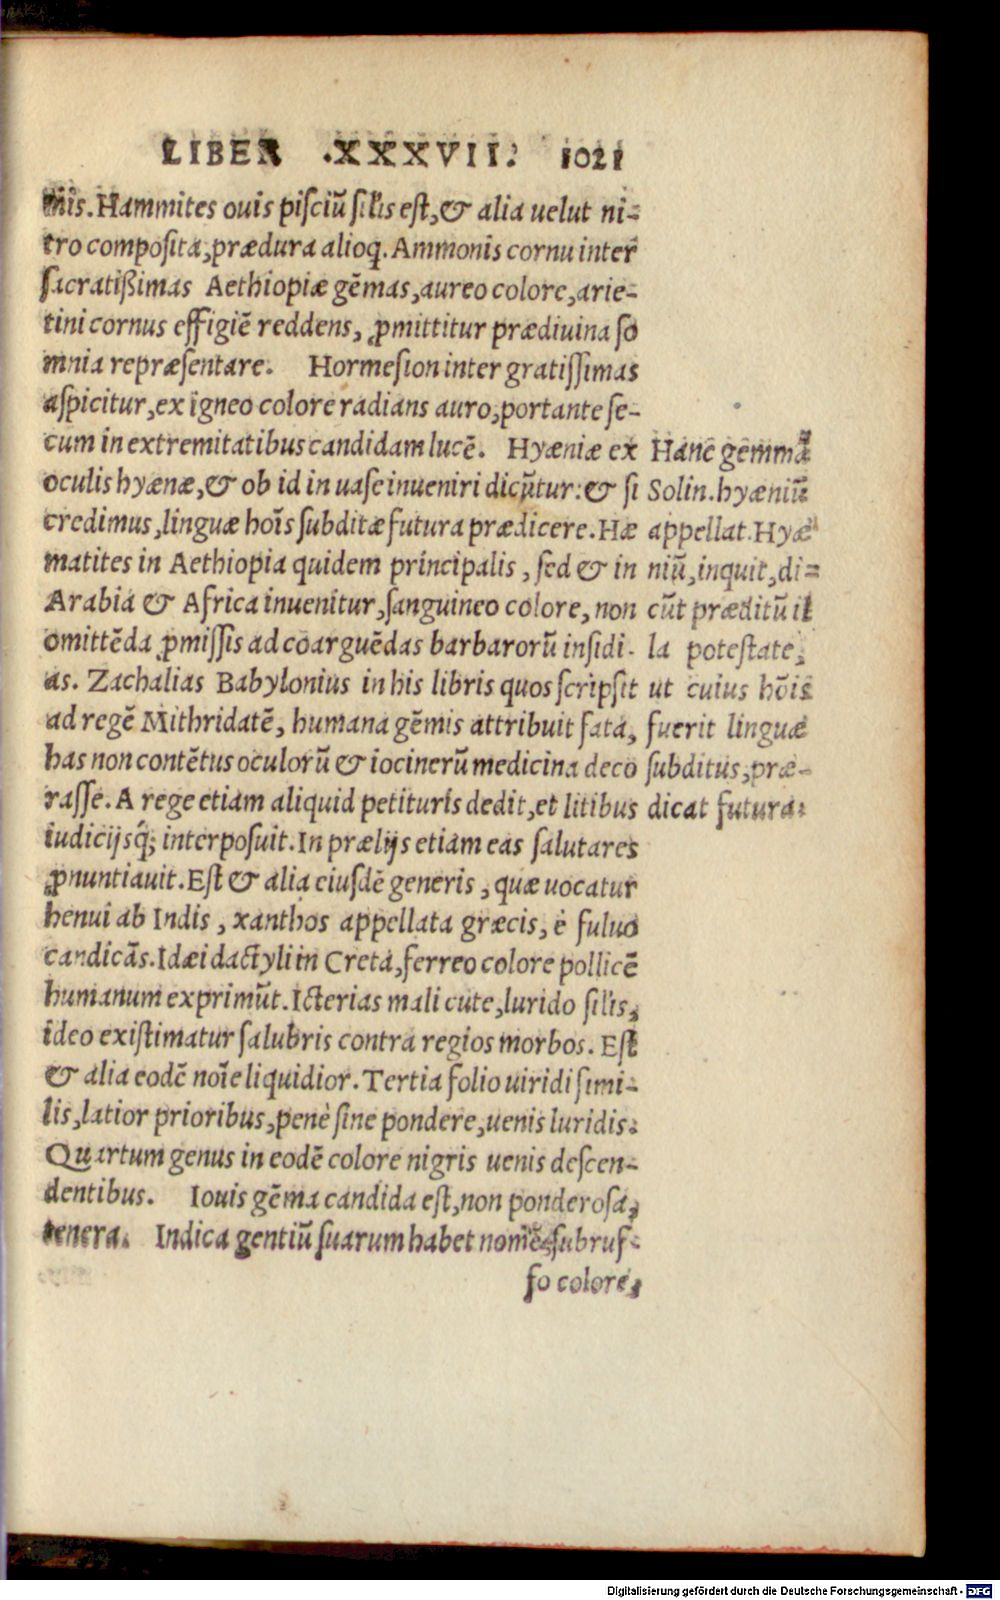 LIBER .XXXVII. 1021
mis. Hammites ouis pisciũ silis est, & alia uelut ni-
tro composita, prædura alioq. Ammonis cornu inter
sacratißimas Aethiopiæ gẽmas, aureo colore, arie-
tini cornus effigiẽ reddens, ꝓmittitur prædiuina so
mnia repræsentare. Hormesion inter gratissimas
aspicitur, ex igneo colore radians auro, portante se-
cum in extremitatibus candidam lucẽ. Hyæniæ ex
oculis hyænæ, & ob id in uase inueniri dicũtur: & si
credimus, linguæ hoĩs subditæ futura prædicere. Hæ
matites in Aethiopia quidem principalis, sed & in
Arabia & Africa inuenitur, sanguineo colore, non
omittẽda ꝓmissis ad coarguẽdas barbarorũ insidi-
as. Zachalias Babylonius in his libris quos scripsit
ad regẽ Mithridatẽ, humana gẽmis attribuit fata,
has non contẽtus oculorũ & iocinerũ medicina deco
rasse. A rege etiam aliquid petituris dedit, et litibus
iudicijsq́; interposuit. In prælijs etiam eas salutares
ꝓnuntiauit. Est & alia eiusdẽ generis, quæ uocatur
henui ab Indis, xanthos appellata græcis, è fuluo
candicãs. Idæi dactyli in Creta, ferreo colore pollicẽ
humanum exprimũt. Icterias mali cute, lurido silis,
ideo existimatur salubris contra regios morbos. Est
& alia eodẽ noĩe liquidior. Tertia folio uiridi simi-
lis, latior prioribus, penè sine pondere, uenis luridis.
Quartum genus in eodẽ colore nigris uenis descen-
dentibus. Iouis gẽma candida est, non ponderosa,
tenera. Indica gentiũ suarum habet nomẽ, subruf-
so colore,
Hanc gemmã
Solin. hyæniũ
appellat. Hyæ
niũ, inquit, di-
cũt præditũ il
la potestate,
ut cuius hõis
fuerit linguæ
subditus, præ-
dicat futura.
Digitalisierung gefördert durch die Deutsche Forschungsgemeinschaft - DFG